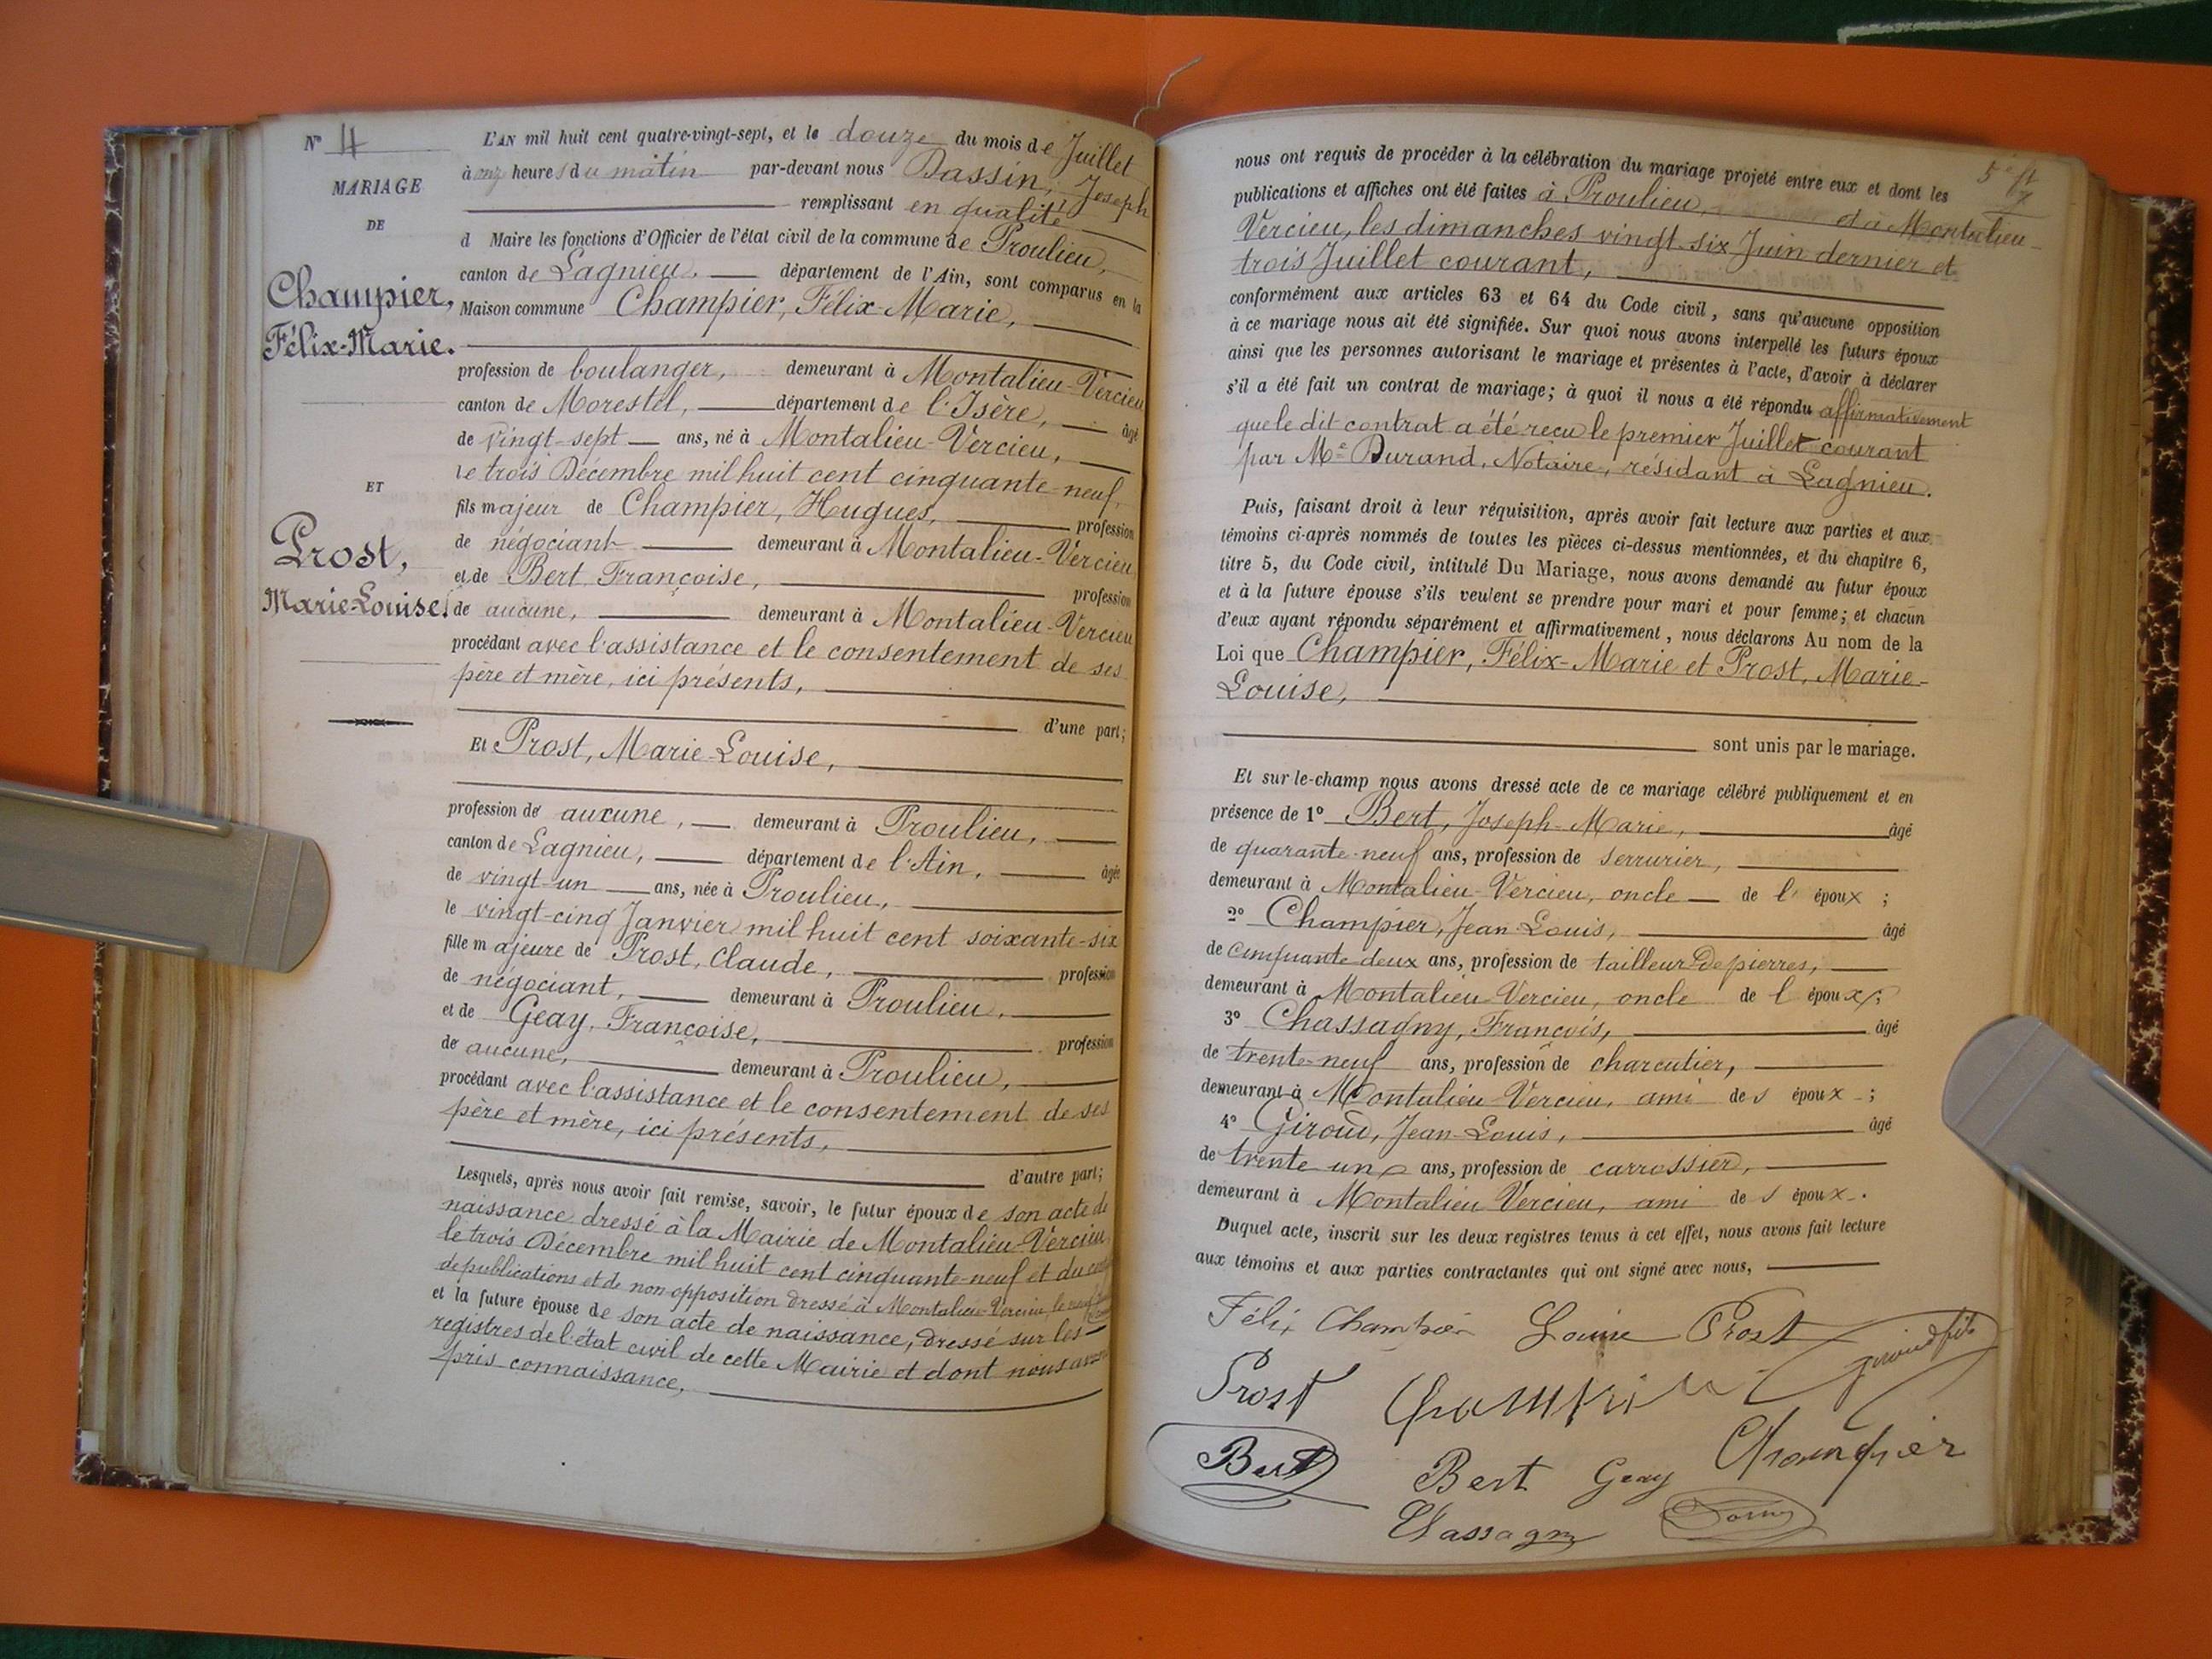 N° 4
MARIAGE
DE
Champier,
Félix-Marie.
ET
Prost,
Marie-Louise.
L'AN mil huit cent quatre-vingt-sept, et le douze du mois de Juillet
à onze heures du matin par-devant nous Dassin, Joseph
remplissant en qualité
d Maire les fonctions d'Officier de l'état civil de la commune de Proulieu,
canton de Lagnieu, département de l'Ain, sont comparus en la
Maison commune Champier, Félix-Marie,
profession de boulanger, demeurant à Montalieu-Vercieu
canton de Morestel, département de l'Isère, âgé
de vingt-sept ans, né à Montalieu-Vercieu,
le trois Décembre mil huit cent cinquante-neuf,
fils majeur de Champier, Hugues, profession
de négociant demeurant à Montalieu-Vercieu
et de Bert Françoise, profession
de aucune, demeurant à Montalieu-Vercieu
procédant avec l'assistance et le consentement de ses
père et mère, ici présents,
d'une part;
Et Prost, Marie-Louise,
profession de aucune, demeurant à Proulieu,
canton de Lagnieu, département de l'Ain, âgée
de vingt-un ans, née à Proulieu,
le vingt-cinq Janvier mil huit cent soixante-six
fille majeure de Prost, Claude, profession
de négociant, demeurant à Proulieu,
et de Geay, Françoise, profession
de aucune, demeurant à Proulieu,
procédant avec l'assistance et le consentement de ses
père et mère, ici présents,
d'autre part;
Lesquels, après nous avoir fait remise, savoir, le futur époux de son acte de
naissance dressé à la Mairie de Montalieu-Vercieu
le trois Décembre mil huit cent cinquante-neuf et du
de publications et de non-opposition dressé à Montalieu-Vercieu, le neuf
et la future épouse de son acte de naissance, dressé sur les
registres de l'état civil de cette Mairie et dont nous avons
pris connaissance,
nous ont requis de procéder à la célébration du mariage projeté entre eux et dont les
publications et affiches ont été faites à Proulieu, et à Montalieu-
Vercieu, les dimanches vingt-six Juin dernier et
trois Juillet courant,
conformément aux articles 63 et 64 du Code civil, sans qu'aucune opposition
à ce mariage nous ait été signifiée. Sur quoi nous avons interpellé les futurs époux
ainsi que les personnes autorisant le mariage et présentes à l'acte, d'avoir à déclarer
s'il a été fait un contrat de mariage; à quoi il nous a été répondu affirmativement
que le dit contrat a été reçu le premier Juillet courant
par Me Durand, Notaire, résidant à Lagnieu.
Puis, faisant droit à leur réquisition, après avoir fait lecture aux parties et aux
témoins ci-après nommés de toutes les pièces ci-dessus mentionnées, et du chapitre 6,
titre 5, du Code civil, intitulé Du Mariage, nous avons demandé au futur époux
et à la future épouse s'ils veulent se prendre pour mari et pour femme; et chacun
d'eux ayant répondu séparément et affirmativement, nous déclarons Au nom de la
Loi que Champier, Félix-Marie et Prost, Marie-
Louise,
sont unis par le mariage.
Et sur-le-champ nous avons dressé acte de ce mariage célébré publiquement et en
présence de 1° Bert, Joseph-Marie, âgé
de quarante-neuf ans, profession de serrurier,
demeurant à Montalieu-Vercieu, oncle de l' époux ;
2° Champier, Jean Louis, âgé
de cinquante deux ans, profession de tailleur de pierres,
demeurant à Montalieu Vercieu, oncle de l époux ;
3° Chassagny, François, âgé
de trente-neuf ans, profession de charcutier,
demeurant à Montalieu Vercieu, ami des époux ;
4° Giroud, Jean-Louis, âgé
de trente un ans, profession de carrossier,
demeurant à Montalieu Vercieu, ami des époux.
Duquel acte, inscrit sur les deux registres tenus à cet effet, nous avons fait lecture
aux témoins et aux parties contractantes qui ont signé avec nous,
Félix Champier Louise Prost Giroud fils
Prost Champier
Bert Bert Geay Champier
Chassagny